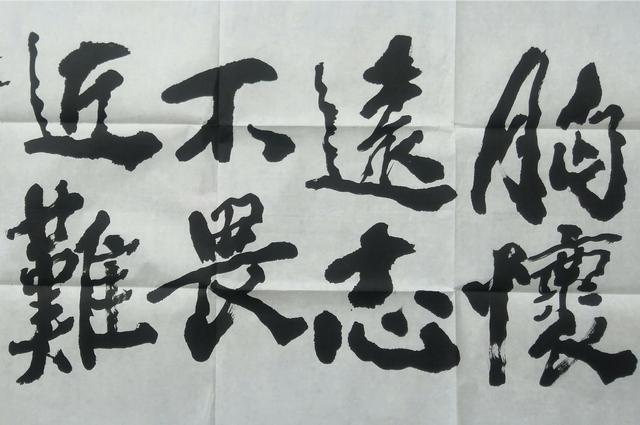 胸懷
遠志
不畏
近難